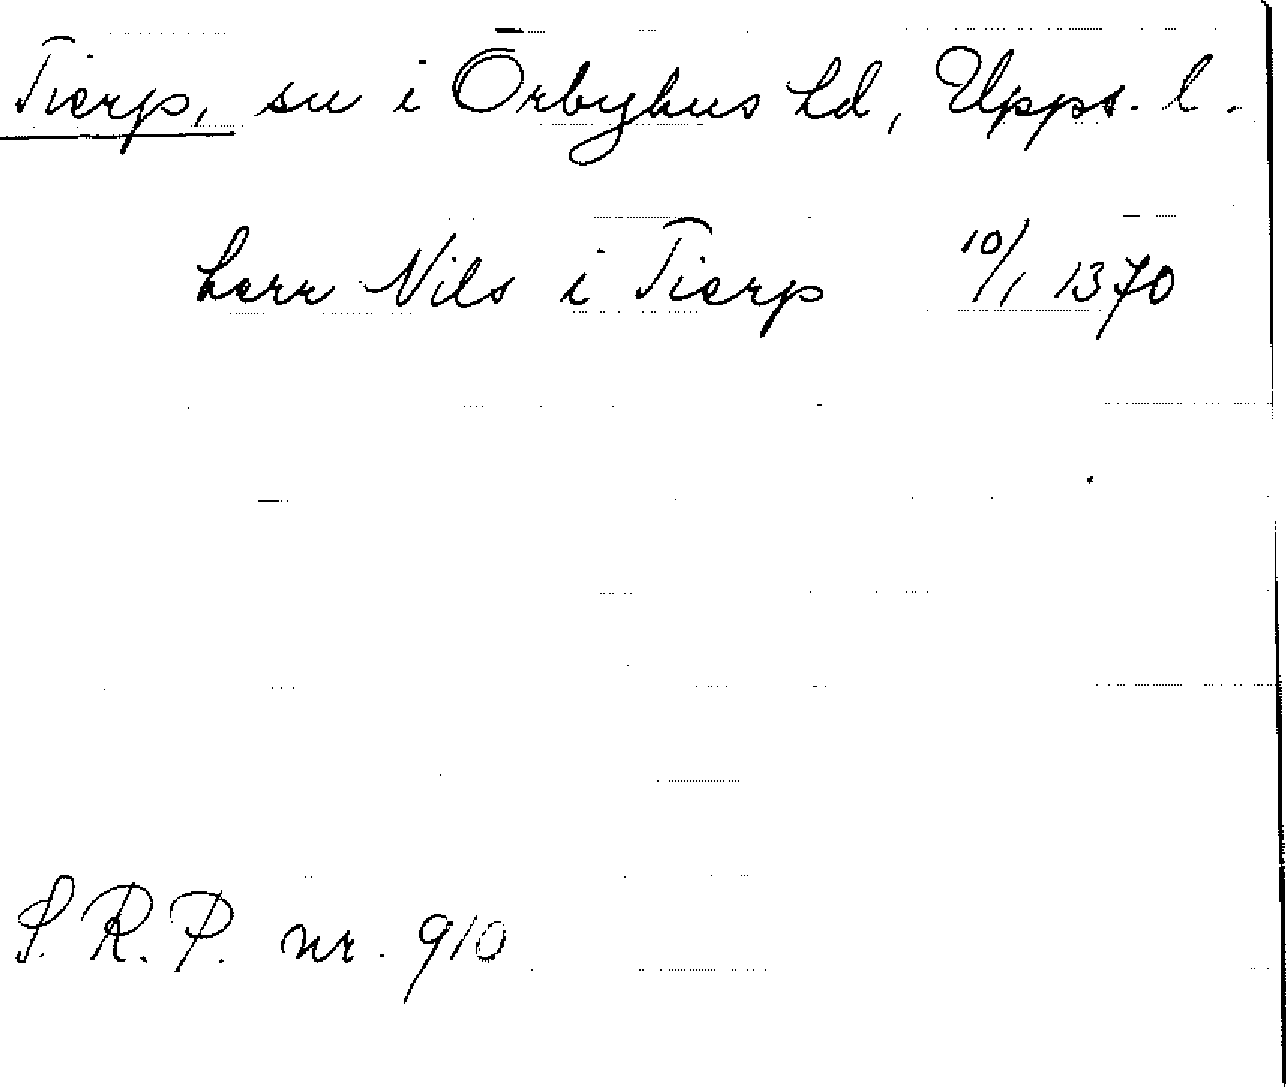 Tierp, sn i Örbyhus hd, Upps. l.
herr Nils i Tierp 10/1 1370
S.R.P. nr. 910